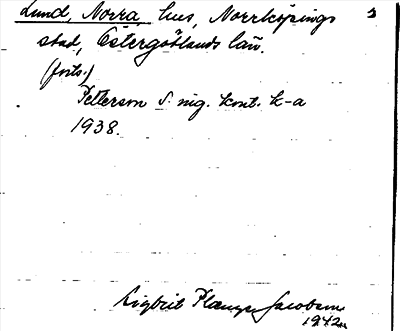 Lund, Norra, hus, Norrköpings 3
stad, Östergötlands län.
(forts.)
Petterson S. ing. kont. k-a
1938.
Sigbrit Plænge Jacobson
1942